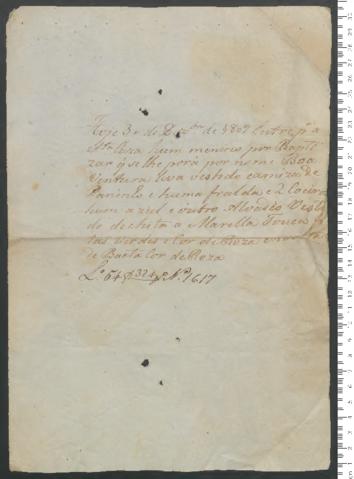 Hoje 3 de Dezbro de 1809 Entre pª a
Sta Caza hum menino por Bapti
zar q se lhe porá por nome Boa
ventura leva vestido camiza de
Paninho e huma fralda e 2 Coeiros
hum azul e outro Vesti
do de chita a Touca
tas verdes e Cor de Roza
de Baeta Cor de Roza
Lo 64 f 324 No 1617